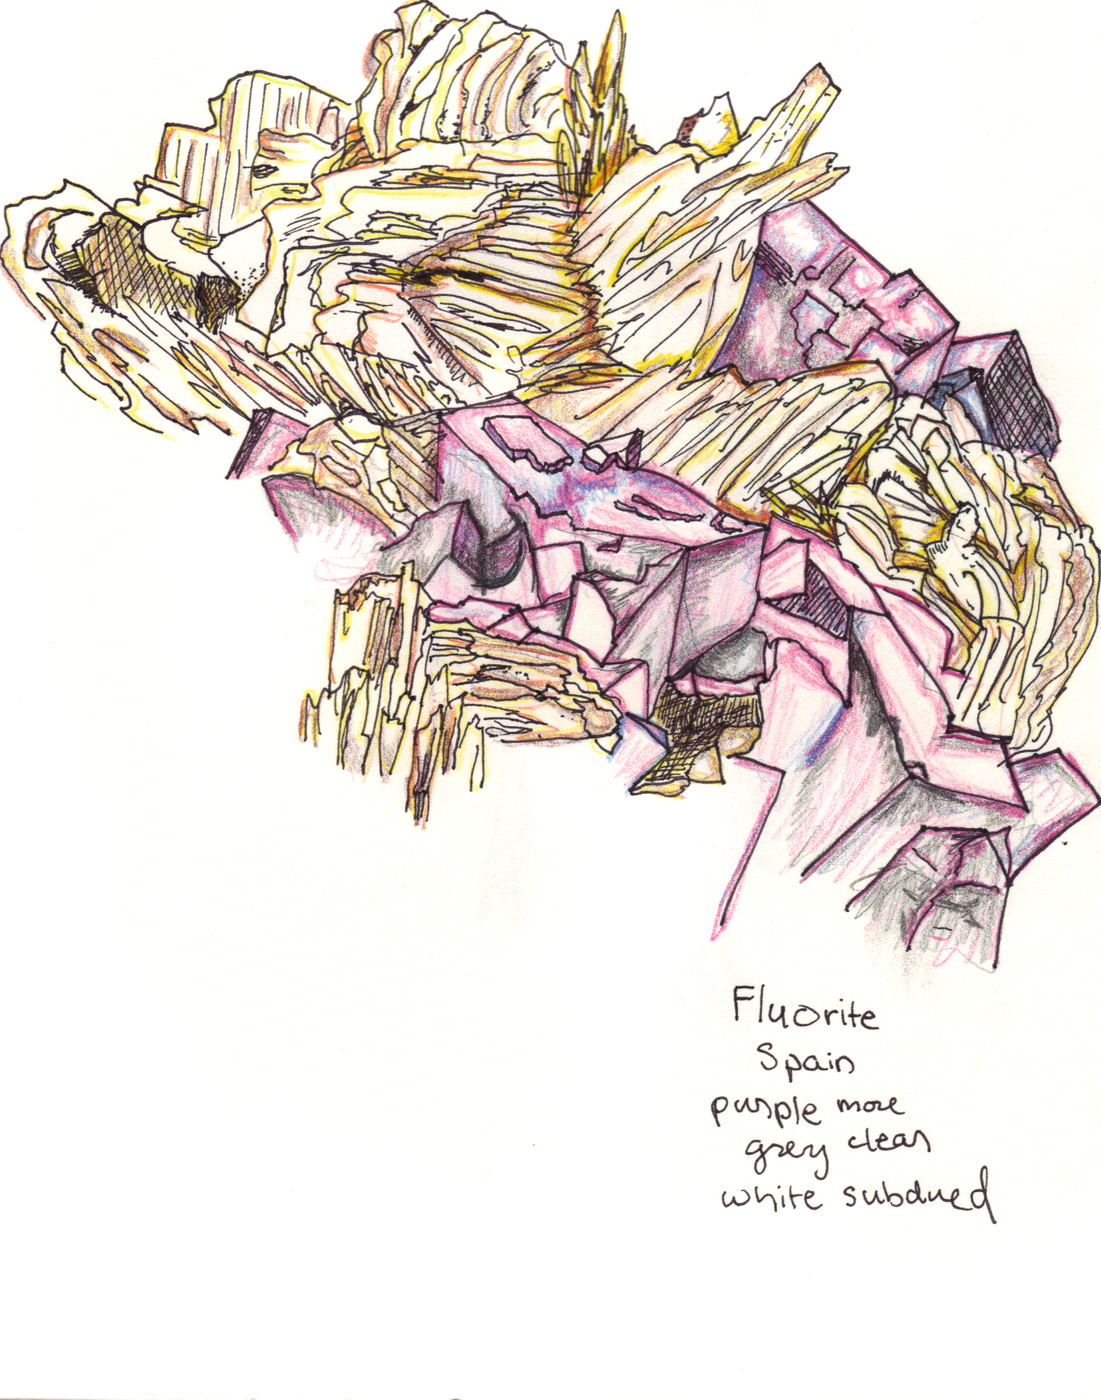 Fluorite
Spain
purple more
grey clear
white subdued